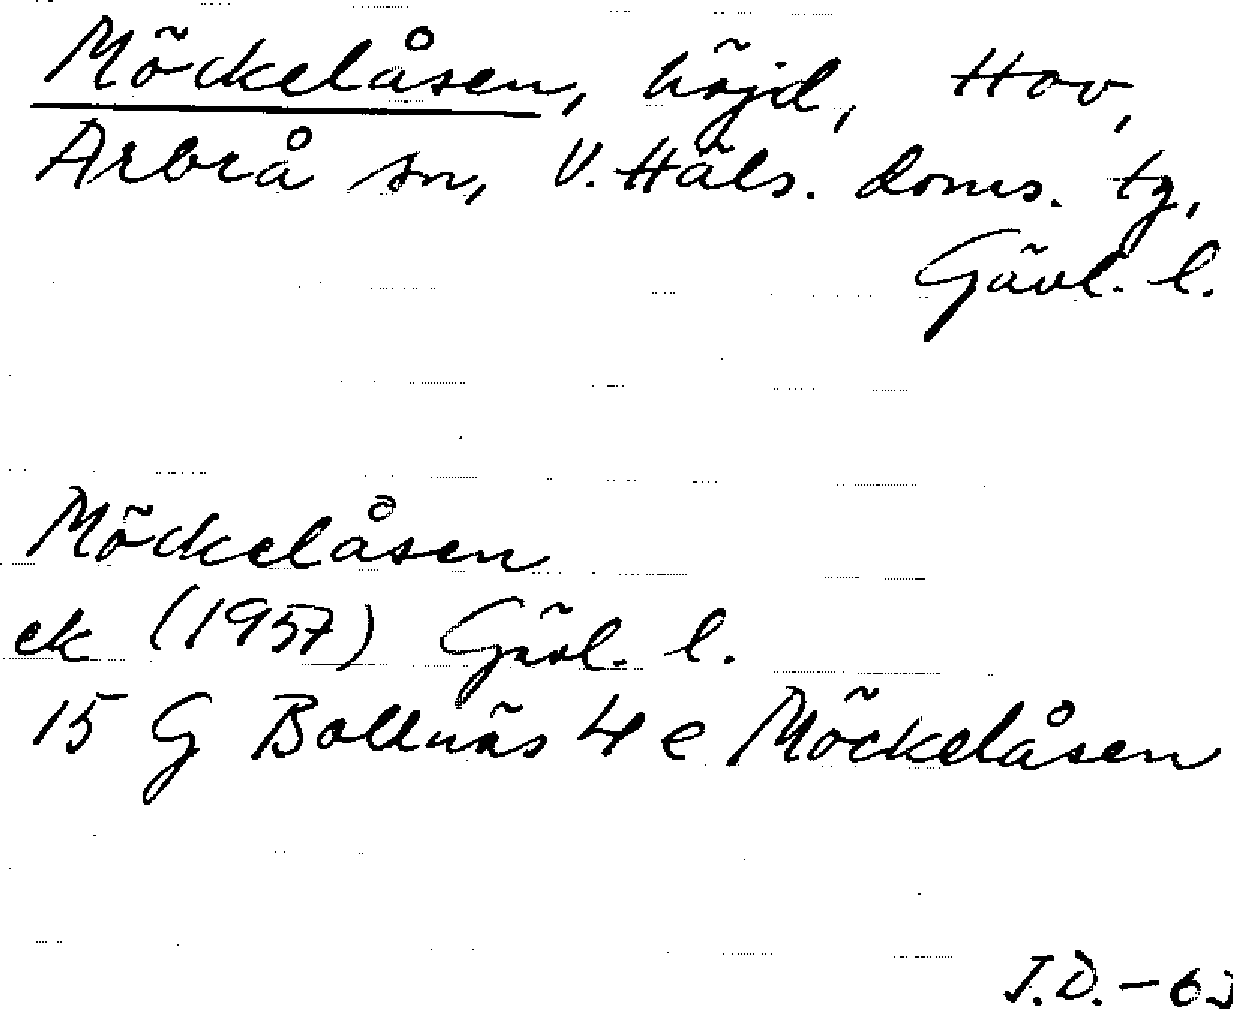 Möckelåsen, höjd, Hov,
Arbrå sn, V. Häls. doms. tg,
Gävl. l.
Möckelåsen
ek (1957) Gävl. l.
15 G Bollnäs 4 e Möckelåsen
J.D.-